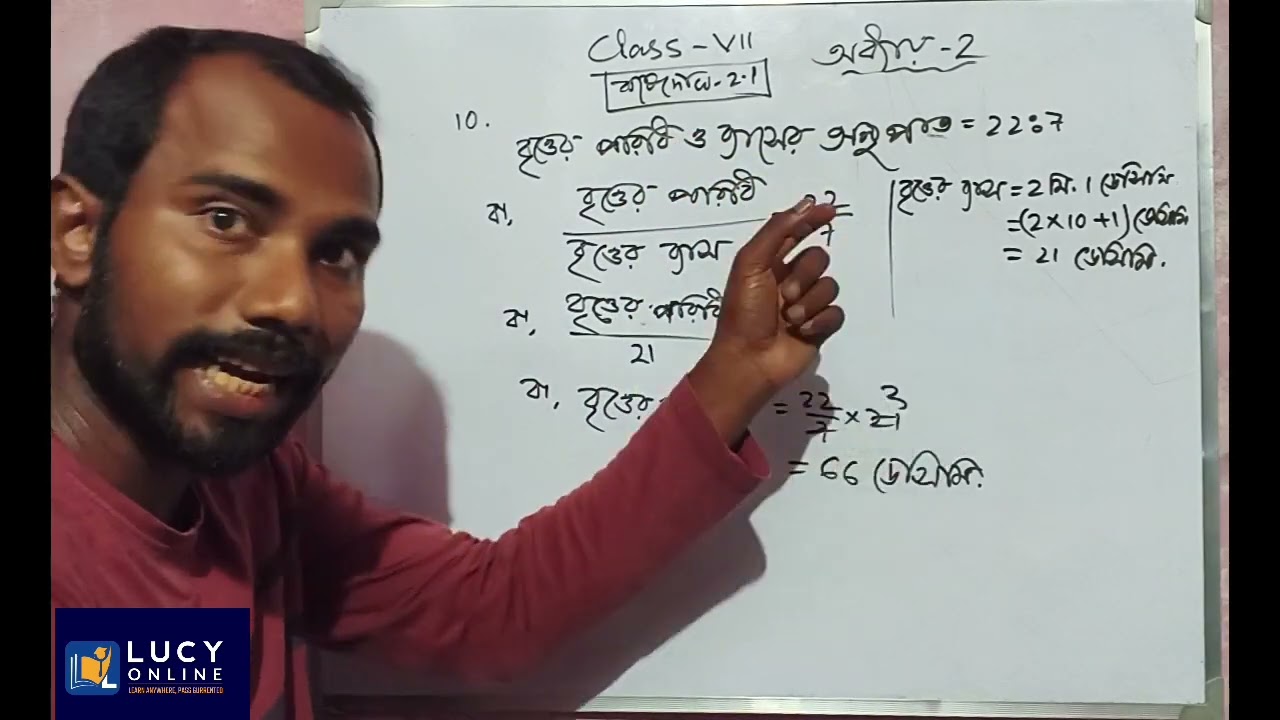 Class-VII
অধ্যায়-2
কষে দেখি-2.1
10.
বৃত্তের পরিধি ও ব্যাসের অনুপাত = 22:7
বা, বৃত্তের পরিধি
বৃত্তের ব্যাস
22
7
বা, বৃত্তের পরিধি
21
বা, বৃত্তের
= 22/7 × 21 3
= 66 ডেসিমি.
বৃত্তের ব্যাস = 2 মি. 1 ডেসিমি
= (2×10+1) ডেসিমি
= 21 ডেসিমি.
LUCY
ONLINE
LEARN ANYWHERE, PASS GURRENTED